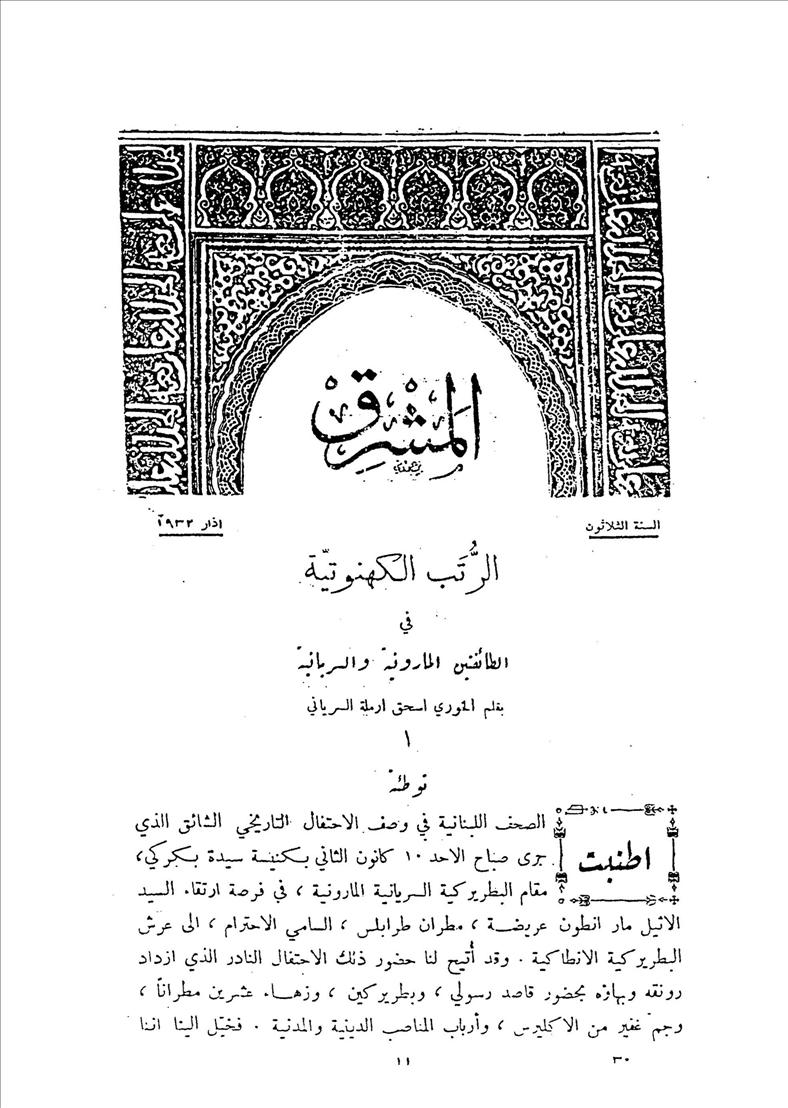 المَشرِق
السنة الثلاثون
اذار ١٩٣٢
الرُّتَب الكهنوتيّة
في
الطائفتين المارونية والسريانية
بقلم الخوري اسحق ارملة السرياني
١
توطئة
اطنبت الصحف اللبنانية في وصف الاحتفال التاريخي الشائق الذي
جرى صباح الاحد ١٠ كانون الثاني بكنيسة سيدة بكركي،
مقام البطريركية السريانية المارونية، في فرصة ارتقاء السيد
الاثيل مار انطون عريضة، مطران طرابلس، السامي الاحترام، الى عرش
البطريركية الانطاكية. وقد أُتيح لنا حضور ذلك الاحتفال النادر الذي ازداد
رونقه وبهاؤه بحضور قاصد رسولي، وبطريركين، وزهاء عشرين مطراناً،
وجم غفير من الاكليرس، وأرباب المناصب الدينية والمدنية. فخيّل الينا اننا
١١
٣٠